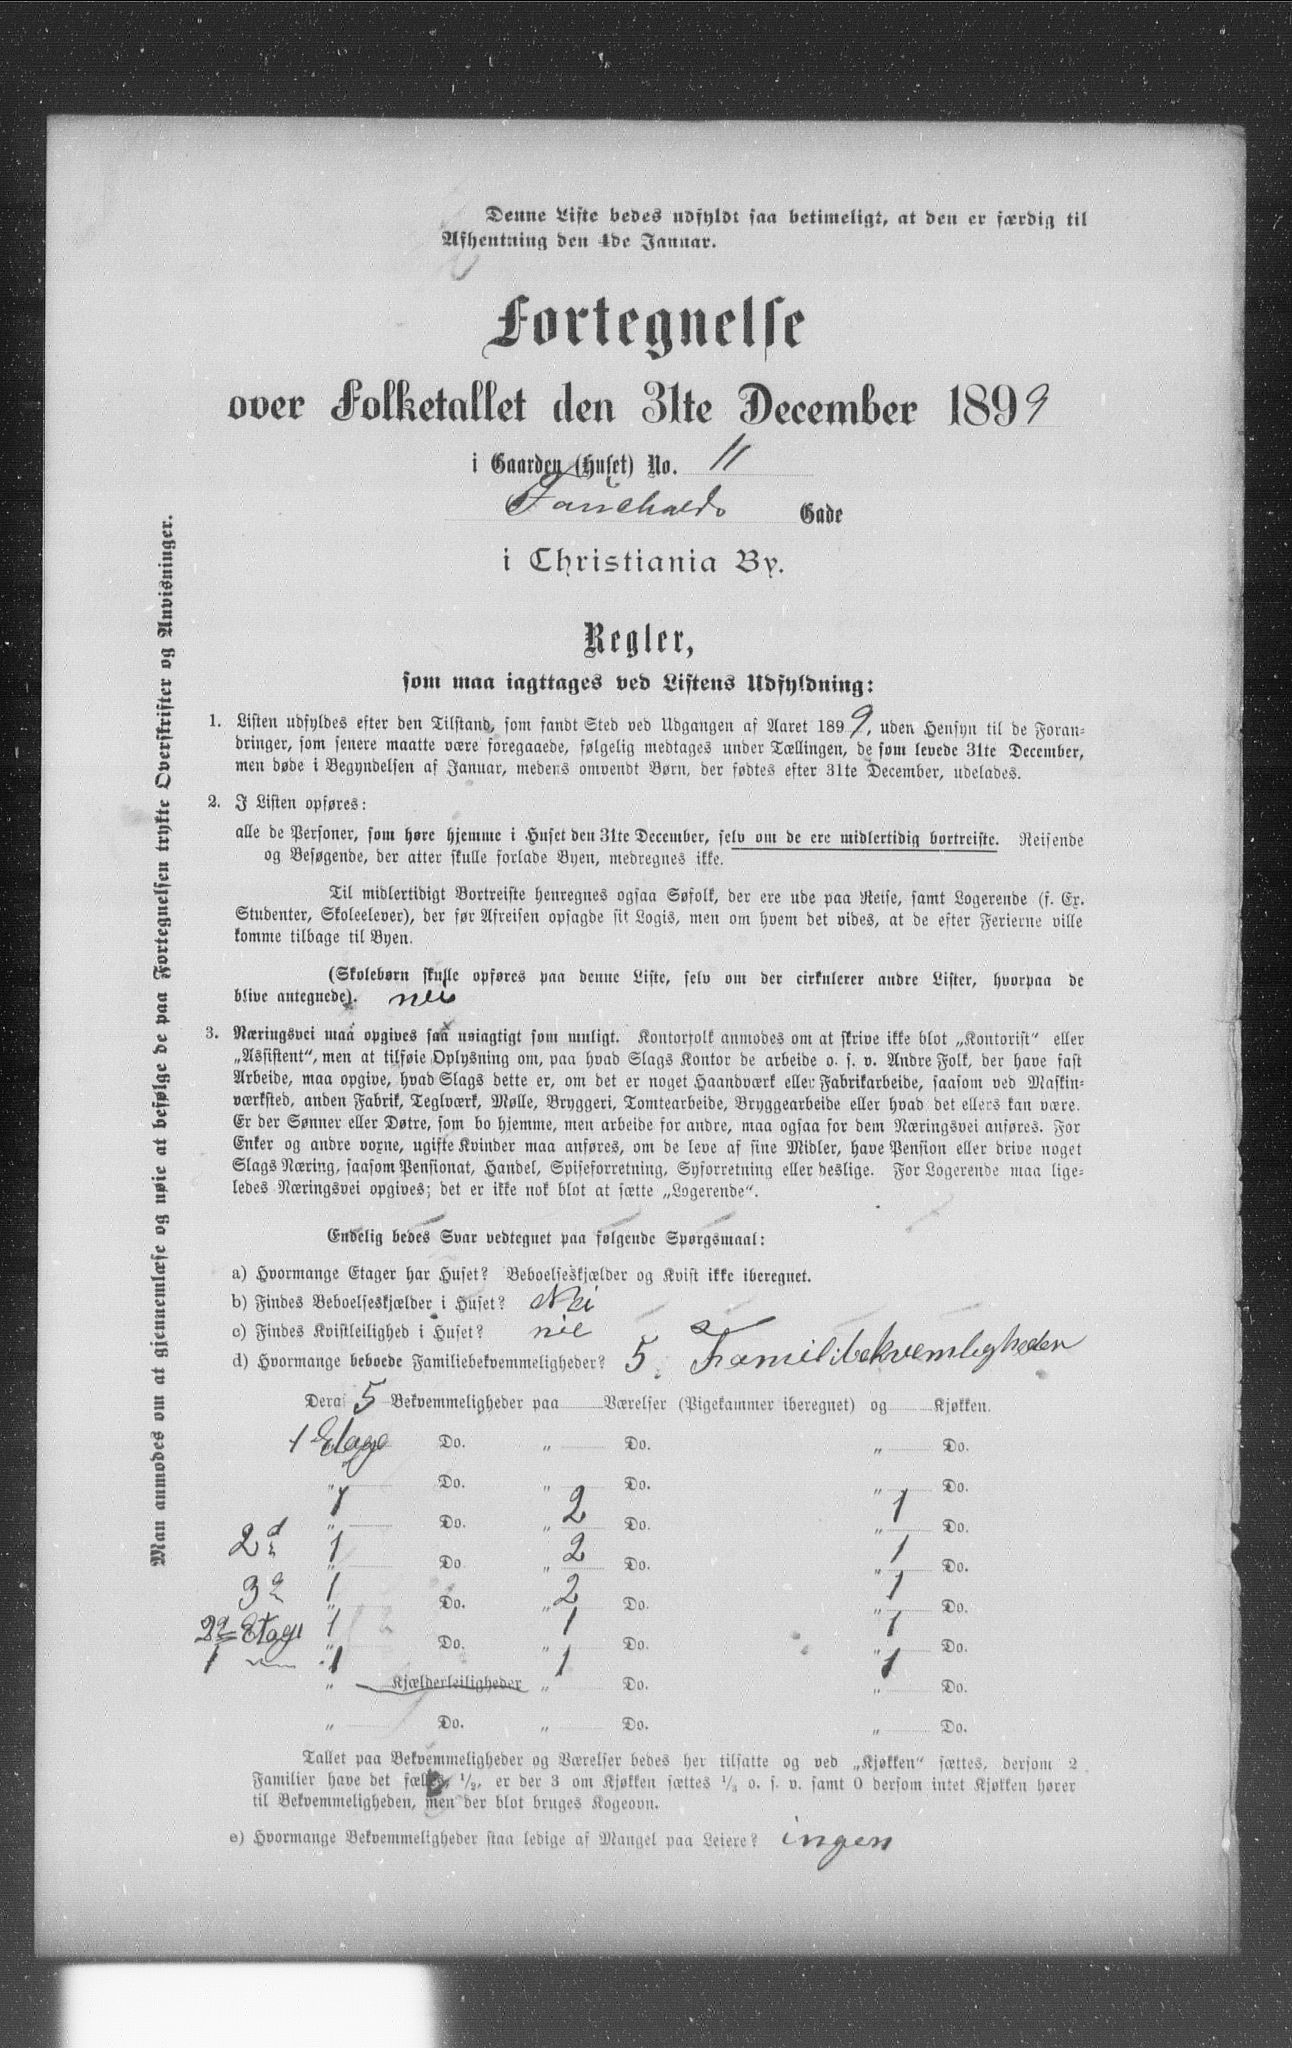 Denne Liste bedes udfyldt saa betimeligt, at den er færdig til
Afhentning den 4de Januar.
Fortegnelse
over Folketallet den 31te December 1899
i Gaarden (Huset) No. 11
Gade
i Christiania By.
Regler,
som maa iagttages ved Listens Udfyldning:
1. Listen udfyldes efter den Tilstand, som fandt Sted ved Udgangen af Aaret 1899, uden Hensyn til de Foran-
dringer, som senere maatte være foregaaede, følgelig medtages under Tællingen, de som levede 31te December,
men døde i Begyndelsen af Januar, medens omvendt Børn, der fødtes efter 31te December, udelades.
2. I Listen opføres:
alle de Personer, som høre hjemme i Huset den 31te December, selv om de ere midlertidig bortreiste. Reisende
og Besøgende, der atter skulle forlade Byen, medregnes ikke.
Til midlertidigt Bortreiste henregnes ogsaa Søfolk, der ere ude paa Reise, samt Logerende (f. Ex.
Studenter, Skoleelever), der før Afreisen opsagde sit Logis, men om hvem det vides, at de efter Ferierne ville
komme tilbage til Byen.
(Skolebørn skulle opføres paa denne Liste, selv om der cirkulerer andre Lister, hvorpaa de
blive antegnede). nei
3. Næringsvei maa opgives saa nøiagtigt som muligt. Kontorfolk anmodes om at skrive ikke blot „Kontorist“ eller
„Assistent“, men at tilføie Oplysning om, paa hvad Slags Kontor de arbeide o. s. v. Andre Folk, der have fast
Arbeide, maa opgive, hvad Slags dette er, om det er noget Haandværk eller Fabrikarbeide, saasom ved Maskin-
værksted, anden Fabrik, Teglværk, Mølle, Bryggeri, Tomtearbeide, Bryggearbeide eller hvad det ellers kan være.
Er der Sønner eller Døtre, som bo hjemme, men arbeide for andre, maa ogsaa for dem Næringsvei anføres. For
Enker og andre vorne, ugifte Kvinder maa anføres, om de leve af sine Midler, have Pension eller drive noget
Slags Næring, saasom Pensionat, Handel, Spiseforretning, Syforretning eller deslige. For Logerende maa lige-
ledes Næringsvei opgives; det er ikke nok blot at sætte „Logerende“.
Endelig bedes Svar vedtegnet paa følgende Spørgsmaal:
a) Hvormange Etager har Huset? Beboelseskjælder og Kvist ikke iberegnet.
b) Findes Beboelseskjælder i Huset? Nei
c) Findes Kvistleilighed i Huset? nei
d) Hvormange beboede Familiebekvemmeligheder? 5. Familibekvemligheder
Deraf 5 Bekvemmeligheder paa Værelser (Pigekammer iberegnet) og Kjøkken.
1 Etage Do. „ Do. „ Do.
„ 1 Do. „ 2 Do. „ 1 Do.
2d „ 1 Do. „ 2 Do. „ 1 Do.
3d „ 1 Do. „ 2 Do. „ 1 Do.
2d Etage „ 1 Do. „ 1 Do. „ 1 Do.
1 „ 1 Do. „ 1 Do. „ 1 Do.
„ Kjælderleiligheder „ Do. „ Do.
„ Do. „ Do. „ Do.
Tallet paa Bekvemmeligheder og Værelser bedes her tilsatte og ved „Kjøkken“ sættes, dersom 2
Familier have det fælles, 1/2, er der 3 om Kjøkken sættes 1/3 o. s. v. samt 0 dersom intet Kjøkken hører
til Bekvemmeligheden, men der blot bruges Kogeovn.
e) Hvormange Bekvemmeligheder staa ledige af Mangel paa Leiere? ingen
Man anmodes om at gjennemlæse og nøie at befølge de paa Fortegnelsen trykte Overskrifter og Anvisninger.